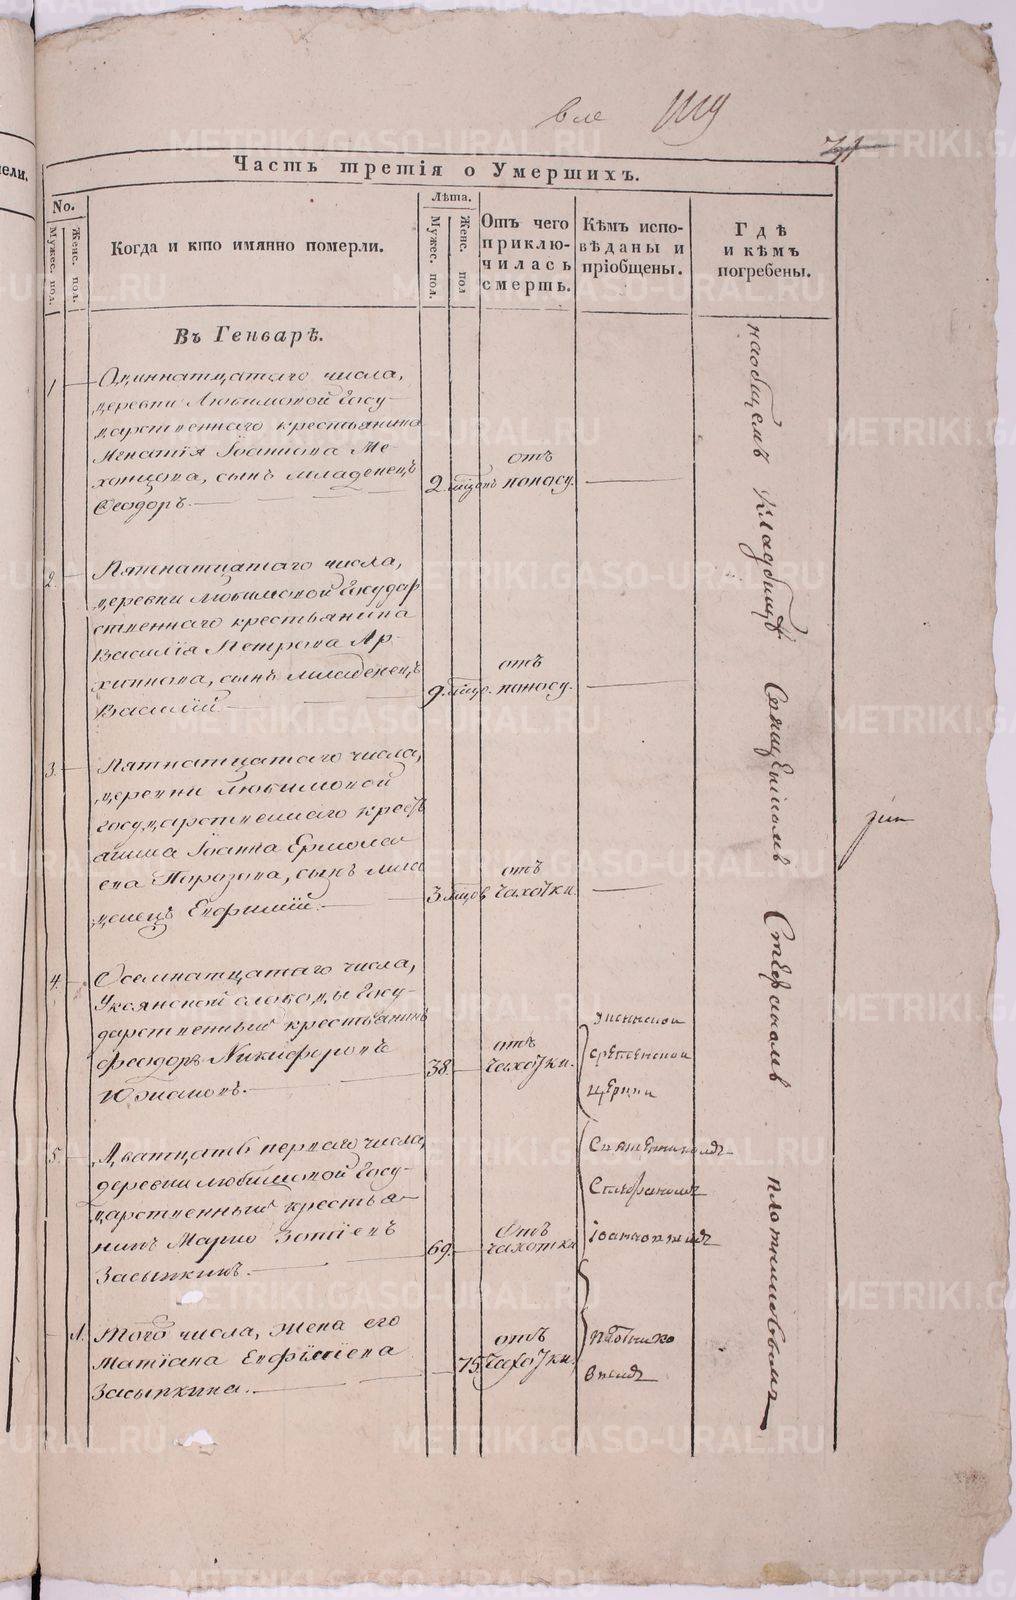 вле
Часть третія о Умершихъ.
No.
Мужес. пол.
Женс. пол.
Когда и кто имянно померли.
Лѣта.
Мужес. пол.
Женс. пол
Отъ чего приключилась смерть.
Кѣмъ исповѣданы и пріобщены.
Гдѣ и кѣмъ погребены.
Въ Генварѣ.
1
Одиннатцатаго числа,
деревни Любимовой Госу-
дарственнаго крестьянина
Игнатія Іоаннова Ме-
хонцова, сынъ младенецъ
Ѳеодоръ.
2.
отъ
поносу.
2.
Пятнатцатаго числа,
деревни Любимовой Государ
ственнаго крестьянина
Василія Петрова Ар-
хиппова, сынъ младенецъ
Василій
9.
отъ
поносу.
3.
Пятнатцатаго числа,
деревни Любимовой
государственнаго крестъ
янина Іоанна Ермола
ева Порозова, сынъ мла
денецъ Евфимій.
3
отъ
чахотки
4.
Осемнатцатаго числа,
Уксянской слободы Госу-
дарственный крестьянинъ
Ѳеодоръ Никифоровъ
Южаковъ.
38.
отъ
чахотки.
срѣтенской
церкви
5.
Дватцать перваго числа,
деревни Любимовой Госу-
дарственный крестья-
нинъ Марко Зотіевъ
Засыпкинъ.
69.
отъ
чахотки
Священникомъ
Стефаномъ
1.
Того числа, жена его
Татіана Евфиміева
Засыпкина.
75
отъ
чахотки
наобщемъ кладбищѣ Священникомъ Стефаномъ Плотниковымъ